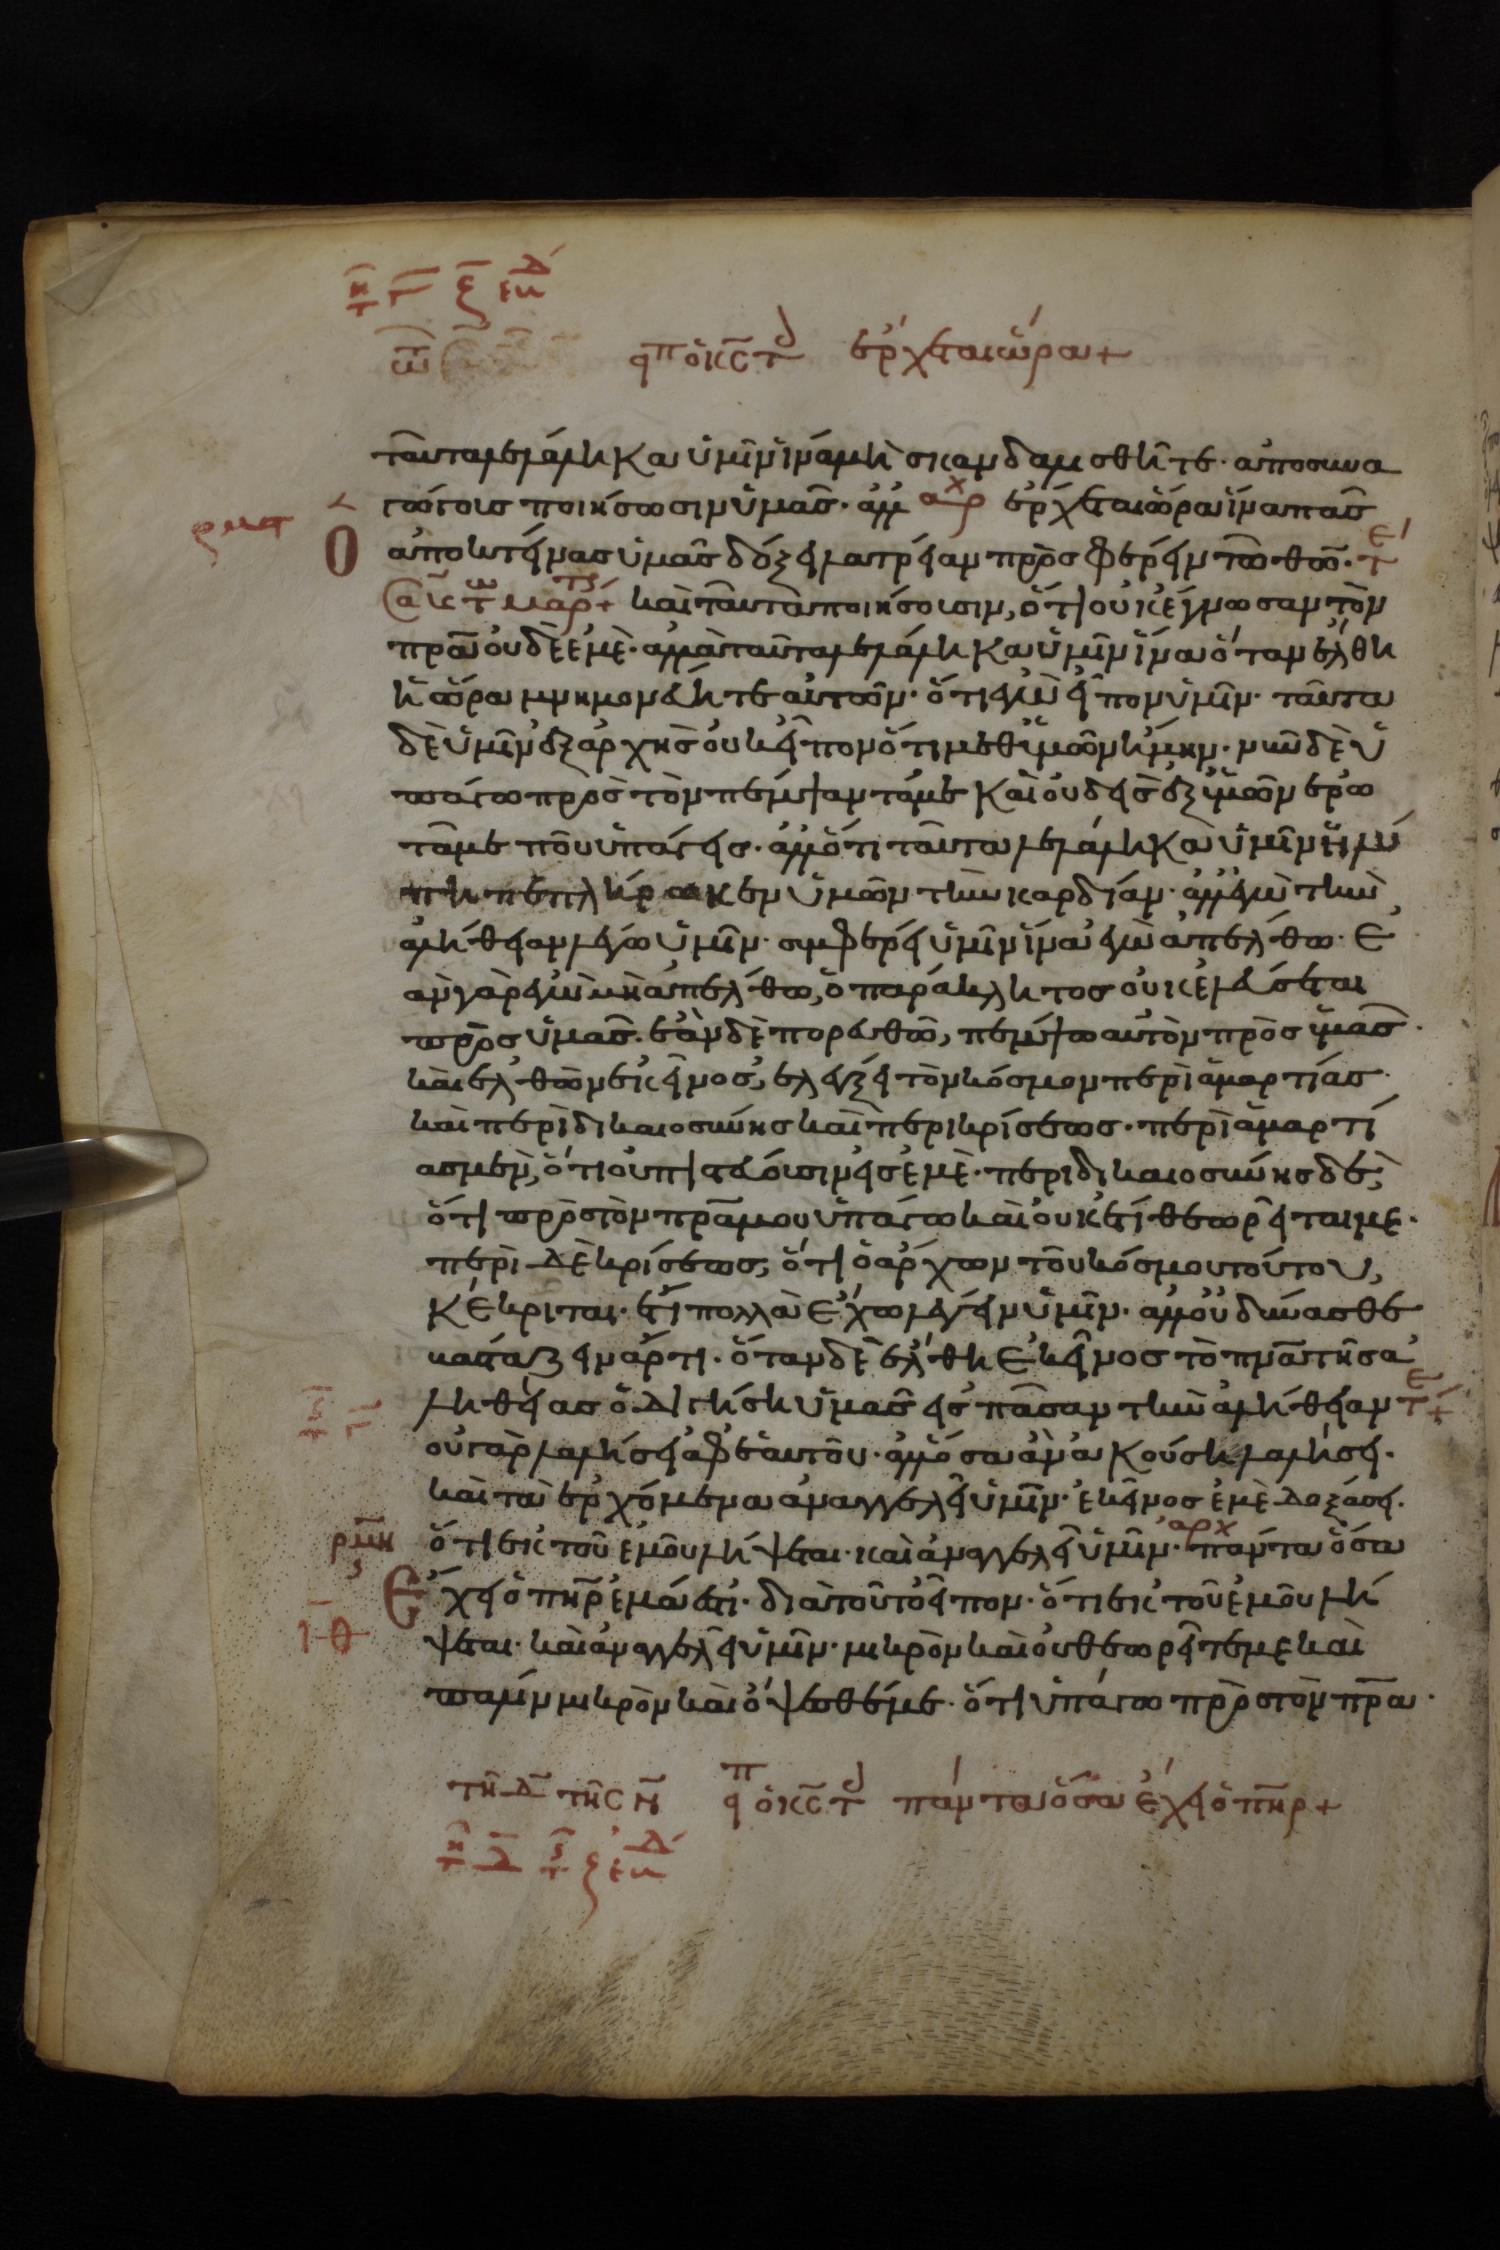 εἶπεν ὁ κς τ ἔρχεται ὥρα +
ταῦτα λελάληκα ὑμῖν ἵνα μὴ σκανδαλισθῆτε· ἀποσυνα
γώγους ποιήσωσιν ὑμᾶς· ἀλλ ἀρχ ἔρχεται ὥρα ἵνα πᾶς
ὁ ἀποκτείνας ὑμᾶς δόξει λατρείαν προσφέρειν τῶ θῶ·
καὶ ταῦτα ποιήσουσιν, ὅτι οὐκ ἔγνωσαν τὸν
πρα οὐδὲ ἐμὲ· ἀλλὰ ταῦτα λελάληκα ὑμῖν ἵνα ὅταν ἔλθη
ἡ ὥρα μνημονεύητε αὐτῶν· ὅτι ἐγὼ εἶπον ὑμῖν· ταῦτα
δὲ ὑμῖν ἐξ ἀρχῆς οὐκ εἶπον ὅτι μεθ ὑμῶν ἤμην· νῦν δὲ ὑ
πάγω πρὸς τὸν πέμψαντά με καὶ οὐδεὶς ἐξ ὑμῶν ἐρω
τᾶ με ποῦ ὑπάγεις· ἀλλ ὅτι ταῦτα λελάληκα ὑμῖν ἡ λύ
πη πεπλήρωκεν ὑμῶν τὴν καρδίαν· ἀλλ ἐγὼ τὴν
ἀλήθειαν λέγω ὑμῖν· συμφέρει ὑμῖν ἵνα ἐγὼ ἀπέλθω· ἐ
ὰν γὰρ ἐγὼ μὴ ἀπέλθω, ὁ παράκλητος οὐκ ἐλεύσεται
πρὸς ὑμᾶς· ἐὰν δὲ πορευθῶ, πέμψω αὐτὸν πρὸς ὑμᾶς·
καὶ ἐλθὼν ἐκεῖνος, ἐλέγξει τὸν κόσμον περὶ ἁμαρτίας·
καὶ περὶ δικαιοσύνης καὶ περὶ κρίσεως· περὶ ἁμαρτί
ας μὲν, ὅτι οὐ πιστεύουσιν εἰς ἐμὲ· περὶ δικαιοσύνης δὲ,
ὅτι πρὸς τὸν πρα μου ὑπάγω καὶ οὐκ έτι θεωρεῖται με·
περὶ δὲ κρίσεως, ὅτι ὁ ἄρχων τοῦ κόσμου τούτου,
κέκριται· ἔτι πολλὰ ἔχω λέγειν ὑμῖν· ἀλλ οὐ δύνασθε
βαστάζειν ἄρτι· ὅταν δὲ ἔλθη ἐκεῖνος τὸ πνα τῆς ἀ
ληθείας ὁδηγήση ὑμᾶς εἰς πᾶσαν τὴν ἀλήθειαν
οὐ γὰρ λαλήσει ἀφ ἑαυτοῦ· ἀλλ ὅσα ἂν ἀκούση λαλήσει·
καὶ τὰ ἐρχόμενα ἀναγγελεῖ ὑμῖν· ἐκεῖνος ἐμὲ δοξάσει·
ρμη ὅτι ἐκ τοῦ ἐμοῦ λήψεται· καὶ ἀναγγελεῖ ὑμῖν· ἀρχ πάντα ὅσα
ἔχει ὁ πηρ ἐμά ἐστι· διὰ τοῦτο εἶπον· ὅτι ἐκ τοῦ ἐμοῦ λή
ψεται· καὶ ἀναγγελεῖ ὑμῖν· μικρὸν καὶ οὐ θεωρεῖτε με καὶ
πάλιν μικρὸν καὶ ὄψεσθέ με· ὅτι ὑπάγω πρὸς τὸν πρα·
τῆ δ τῆς ν εἶπεν ὁ κς τ πάντα ὅσα ἔχει ὁ πηρ +